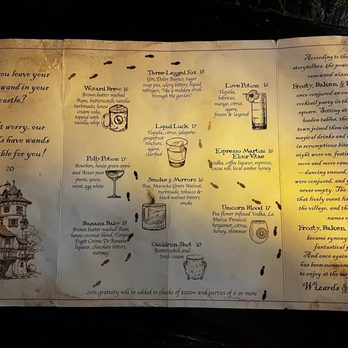 you leave your
wand in your
castle?
't worry, our
's have wands
able for you!
20
Three-Legged Fox 18
Gin, Dolin Bianco, sugar
snap pea, celery bitters, liquid
nitrogen, "like a midday stroll
through the garden"
Wizard Brew 16
Brown butter washed
Rum, butterscotch, vanilla
butterbeer, house
cream soda,
topped with
vanilla, whip
Liquid Luck 17
Tequila,
citrus, jalapeño
grapefruit
bitters
Polly Potion 17
Bourbon, house grown apple
and Asian pear
puree, yuzu,
mint, egg white
Smoke y Mirrors 16
Rye, Maraska Green Walnut,
Montenegro, tobacco &
black walnut bitters,
smoke
Banana Baby 17
Brown butter washed Rum,
house coconut blend, Tempus
Fugit Crème De Banana,
agave, chocolate bitters,
nutmeg
Cauldron Shot 10
Butterscotch and
Irish cream
Love Potion 16
Tequila,
hibiscus,
mango, citrus,
agave,
Espresso Martini 16
Elixir Vitae
Vodka, coffee liqueur, espresso,
cocoa salt, local honeycomb
Unicorn Blood 17
Tea flower infused Vodka, La
Marina Prosecco,
bergamot,
citrus, mint
20% gratuity will be added to checks of $200+ and parties of 6 or more
According to the
storytellers, the pow
renowned wizar
Frosty, Baken, &
were conjured, and
cocktail party in the
square. Sitting at
wooden tables, the
town joined them in
magical drinks and
in scrumptious bite
night wore on, fant
were and were rum
dancing around
were conjured, and g
never empty. The
that lively event lin
the village, and the
names
Frosty, Baken,
became synony
fantastical f
And once again
has been
to enjoy at the
Wizards